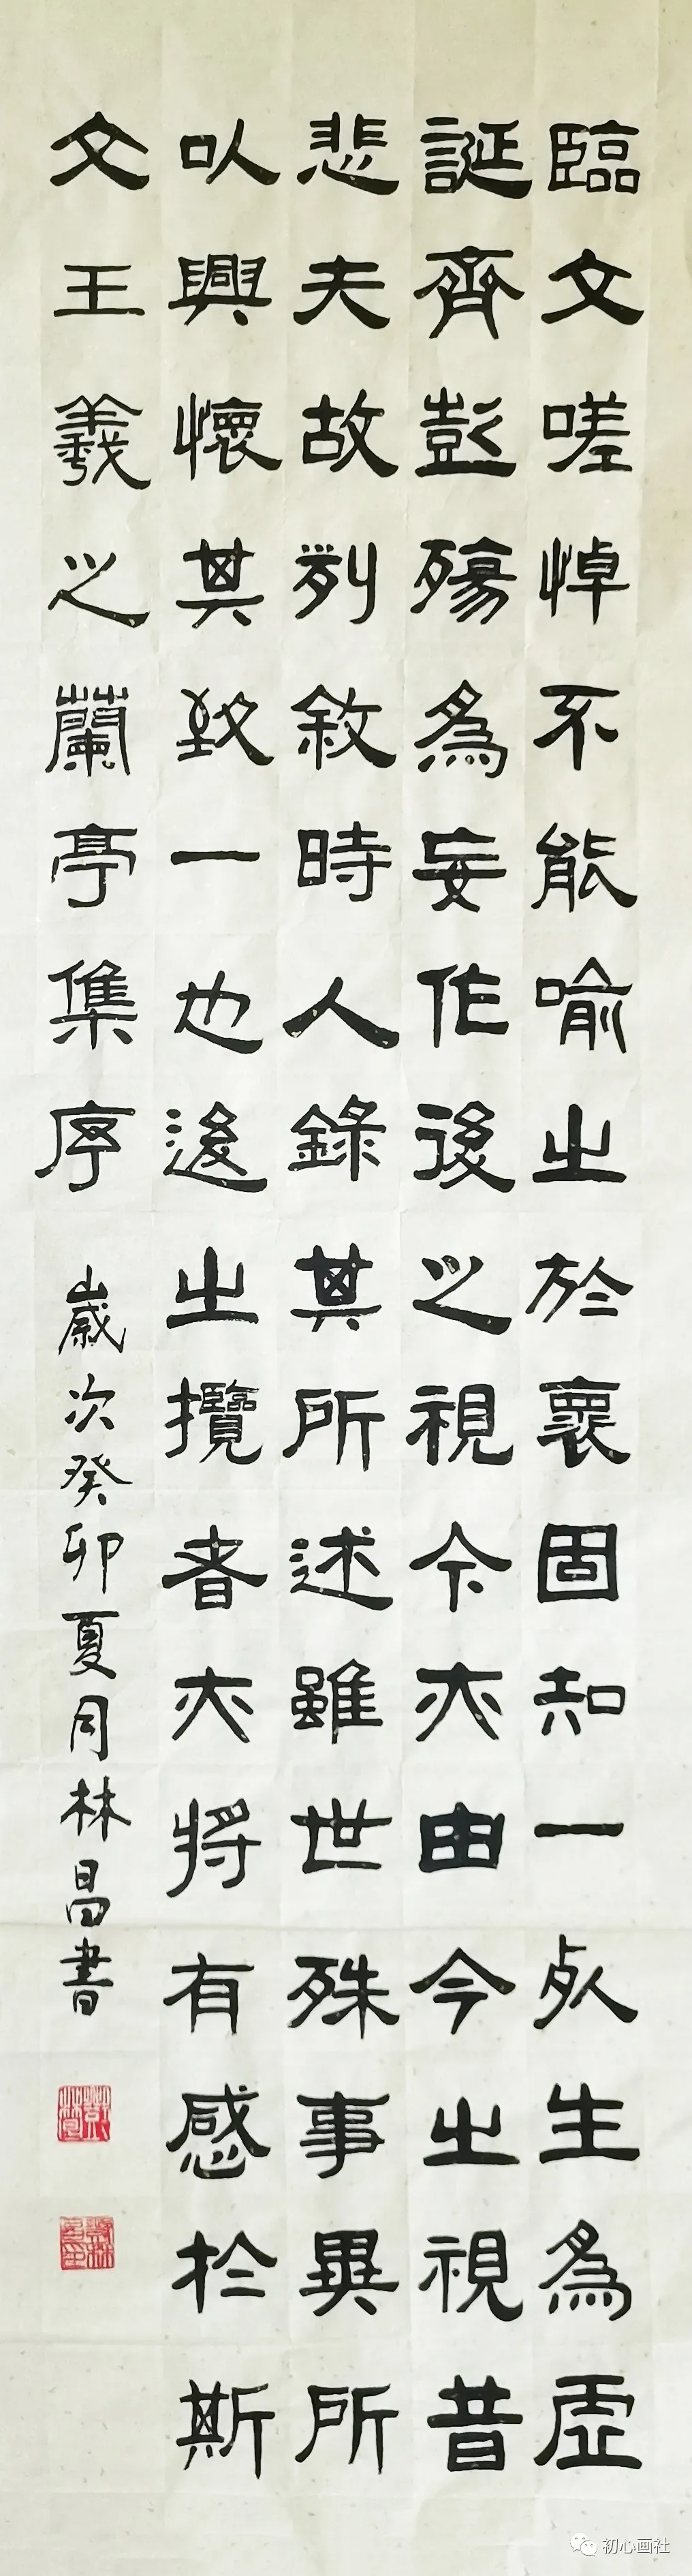 臨文嗟悼不能喻之於襄固知一死生為虛
誕齊彭殤為妄作後之視今亦由今之視昔
悲夫故列敘時人錄其所述雖世殊事異所
以興懷其致一也後之攬者亦將有感於斯
文王羲之蘭亭集序
歲次癸卯夏月林昌書
初心画社